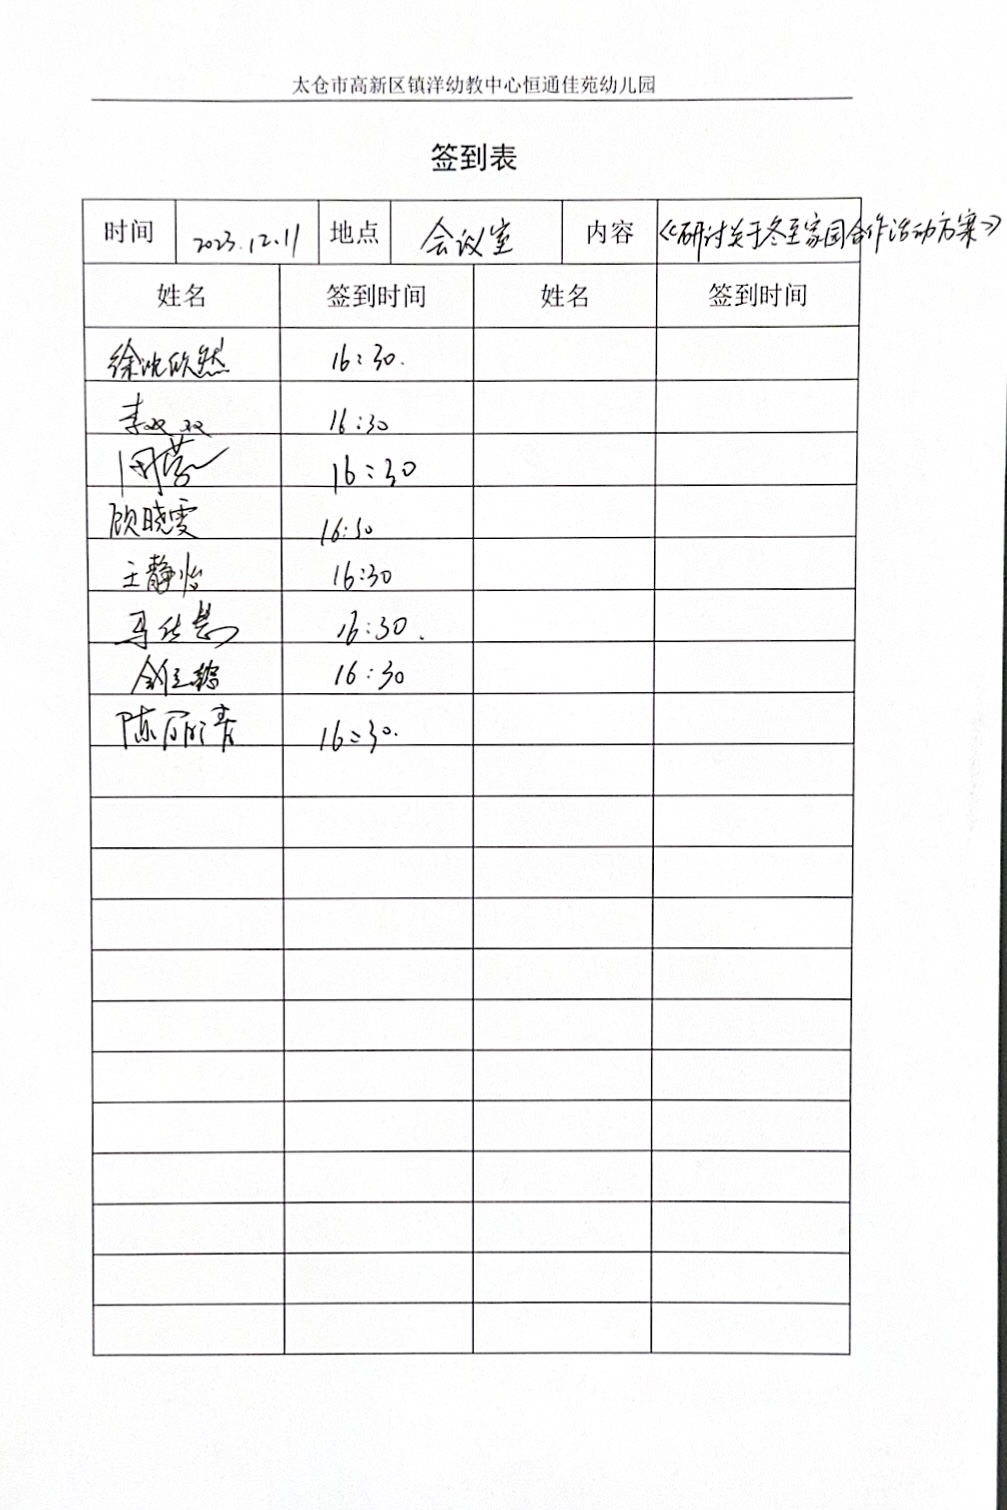 太仓市高新区镇洋幼教中心恒通佳苑幼儿园
签到表
时间 2023.12.11 地点 会议室 内容 《研讨关于冬至家园合作活动方案》
姓名 签到时间 姓名 签到时间
徐沈欣然 16:30.
李双双 16:30
周蓉 16:30
顾晓雯 16:30
王静怡 16:30
马 16:30.
16:30
陈丽清 16:30.